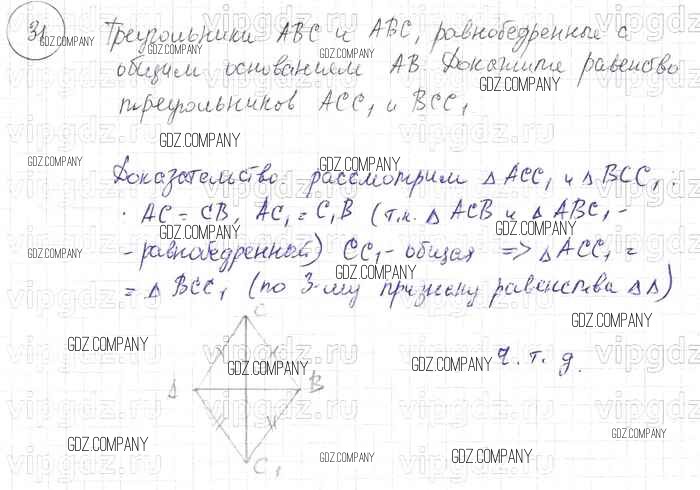 31 Треугольники ABC и ABC₁ равнобедренные с
общим основанием AB. Докажите равенство
треугольников ACC₁ и BCC₁
Доказательство рассмотрим △ ACC₁ и △ BCC₁.
AC = CB, AC₁ = C₁B (т.к. △ ACB и △ ABC₁ -
- равнобедренной) CC₁ - общая => △ ACC₁ =
= △ BCC₁ (по 3-му признаку равенства △△)
ч. т. д.
C
A B
C₁
GDZ.COMPANY
vipgdz.ru